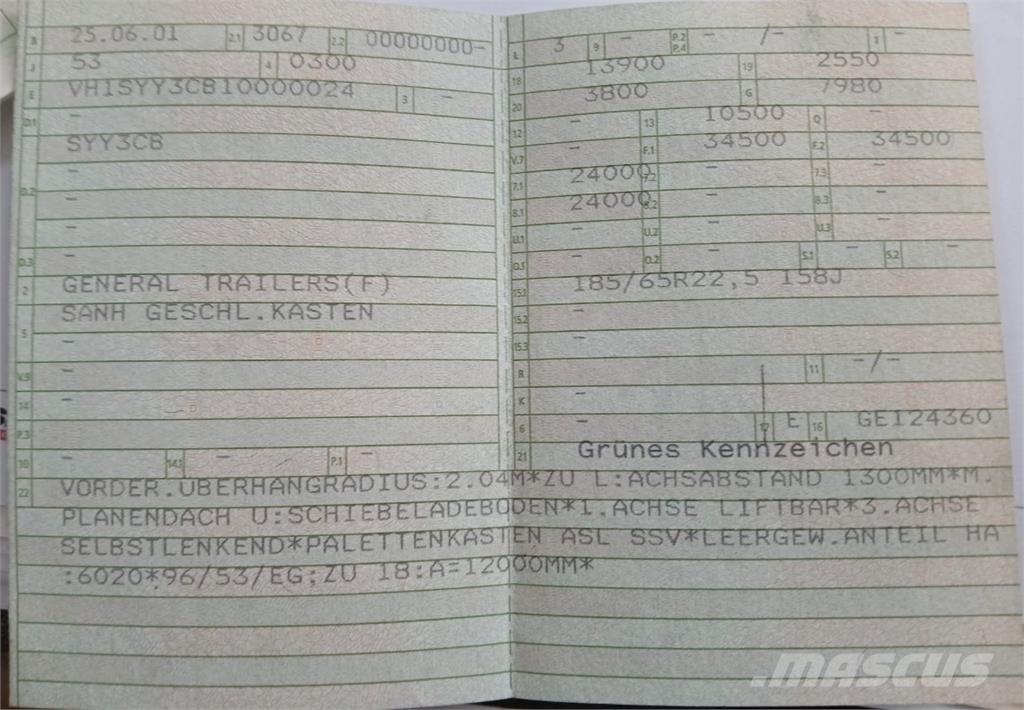 B 25.06.01 2.1 3067 2.2 00000000-
J 53 4 0300
E VH1SYY3CB10000024 3 -
D.1 -
SYY3CB
-
D.2 -
-
D.3 -
2 GENERAL TRAILERS(F)
SANH GESCHL.KASTEN
5 -
V.9 -
14 -
P.3
10 - 14.1 - P.1 -
L 3 9 - P.2 P.4 - /- T -
18 13900 19 2550
20 3800 G 7980
12 - 13 10500 Q -
V.7 - F.1 34500 F.2 34500
7.1 24000 7.2 - 7.3 -
8.1 24000 8.2 - 8.3 -
U.1 - U.2 - U.3 -
O.1 - O.2 - S.1 - S.2 -
15.1 185/65R22,5 158J
15.2 -
15.3 -
R - 11 -/-
K -
6 - 17 E 16 GE124360
21 Grünes Kennzeichen
22 VORDER.ÜBERHANGRADIUS:2.04M*ZU L:ACHSABSTAND 1300MM*M.
PLANENDACH U:SCHIEBELADEBODEN*1.ACHSE LIFTBAR*3.ACHSE
SELBSTLENKEND*PALETTENKASTEN ASL SSV*LEERGEW.ANTEIL HA
:6020*96/53/EG;ZU 18:A=12000MM*
.MASCUS